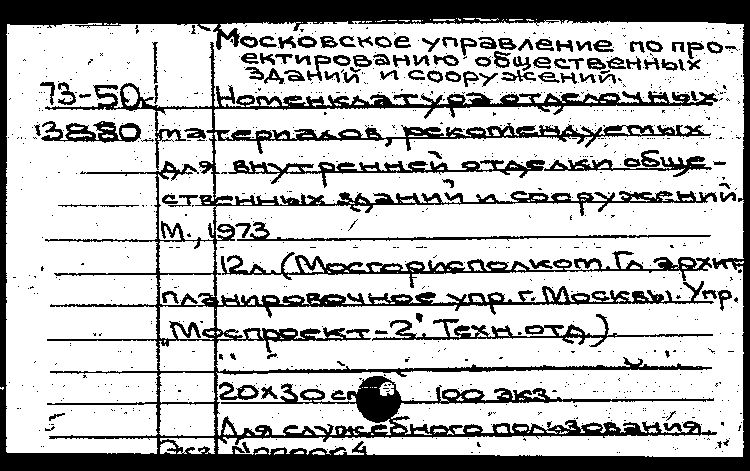 Московское управление по про-
ектированию общественных
зданий и сооружений.
73-50к Номенклатура отделочных
13880 материалов, рекомендуемых
для внутренней отделки обще-
ственных зданий и сооружений.
М., 1973.
12л. (Мосгорисполком. Гл. архит.
планировочное упр. г. Москвы. Упр.
"Моспроект-2". Техн. отд.)
20х30 см 100 экз.
Для служебного пользования.
Экз.